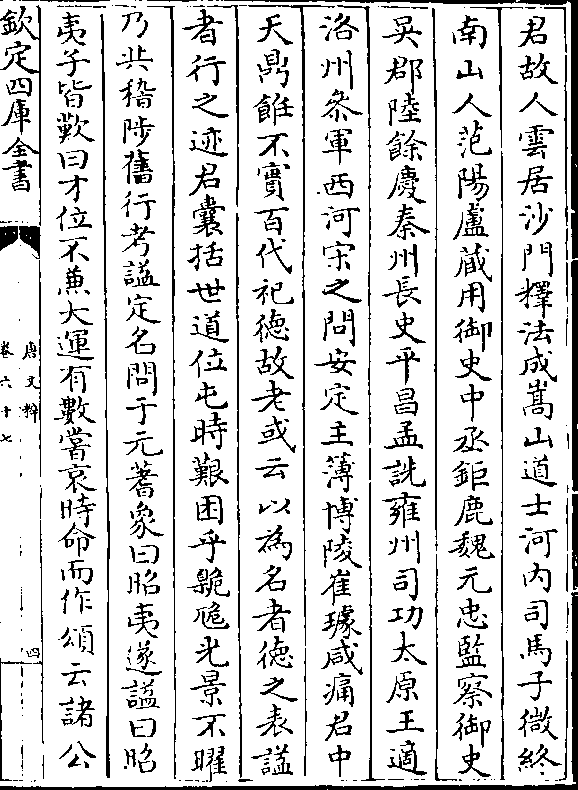 君故人雲居沙門釋法成嵩山道士河内司馬子微終
南山人范陽盧藏用御史中丞鉅鹿魏元忠監察御史
吳郡陸餘慶秦州長史平昌孟詵雍州司功太原王適
洛州叅軍西河宋之問安定主簿博陵崔璩咸痛君中
天鼎餁不實百代祀徳故老或云以為名者徳之表謚
者行之迹君囊括世道位屯時艱困乎臲卼光景不曜
乃共稽陟舊行考謚定名問于元蓍象曰昭夷遂謚曰昭
夷子皆歎曰才位不兼大運有數嘗哀時命而作頌云諸公
欽定四庫全書
唐文粹
卷六十七
四